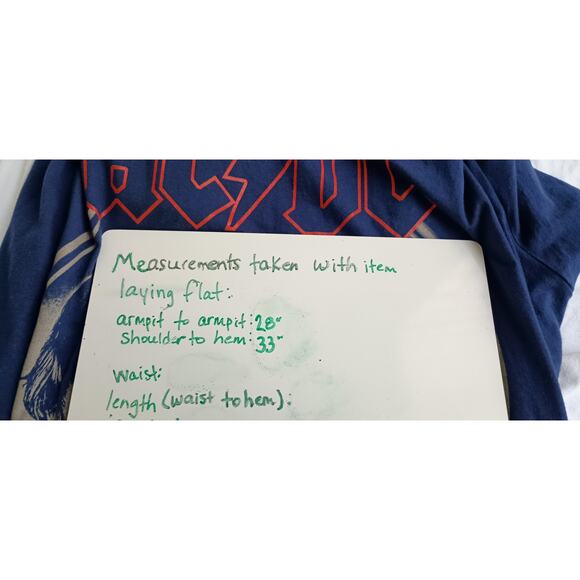 AC/DC
Measurements taken with item
laying flat:
armpit to armpit: 28"
shoulder to hem: 33"
waist:
length (waist to hem):